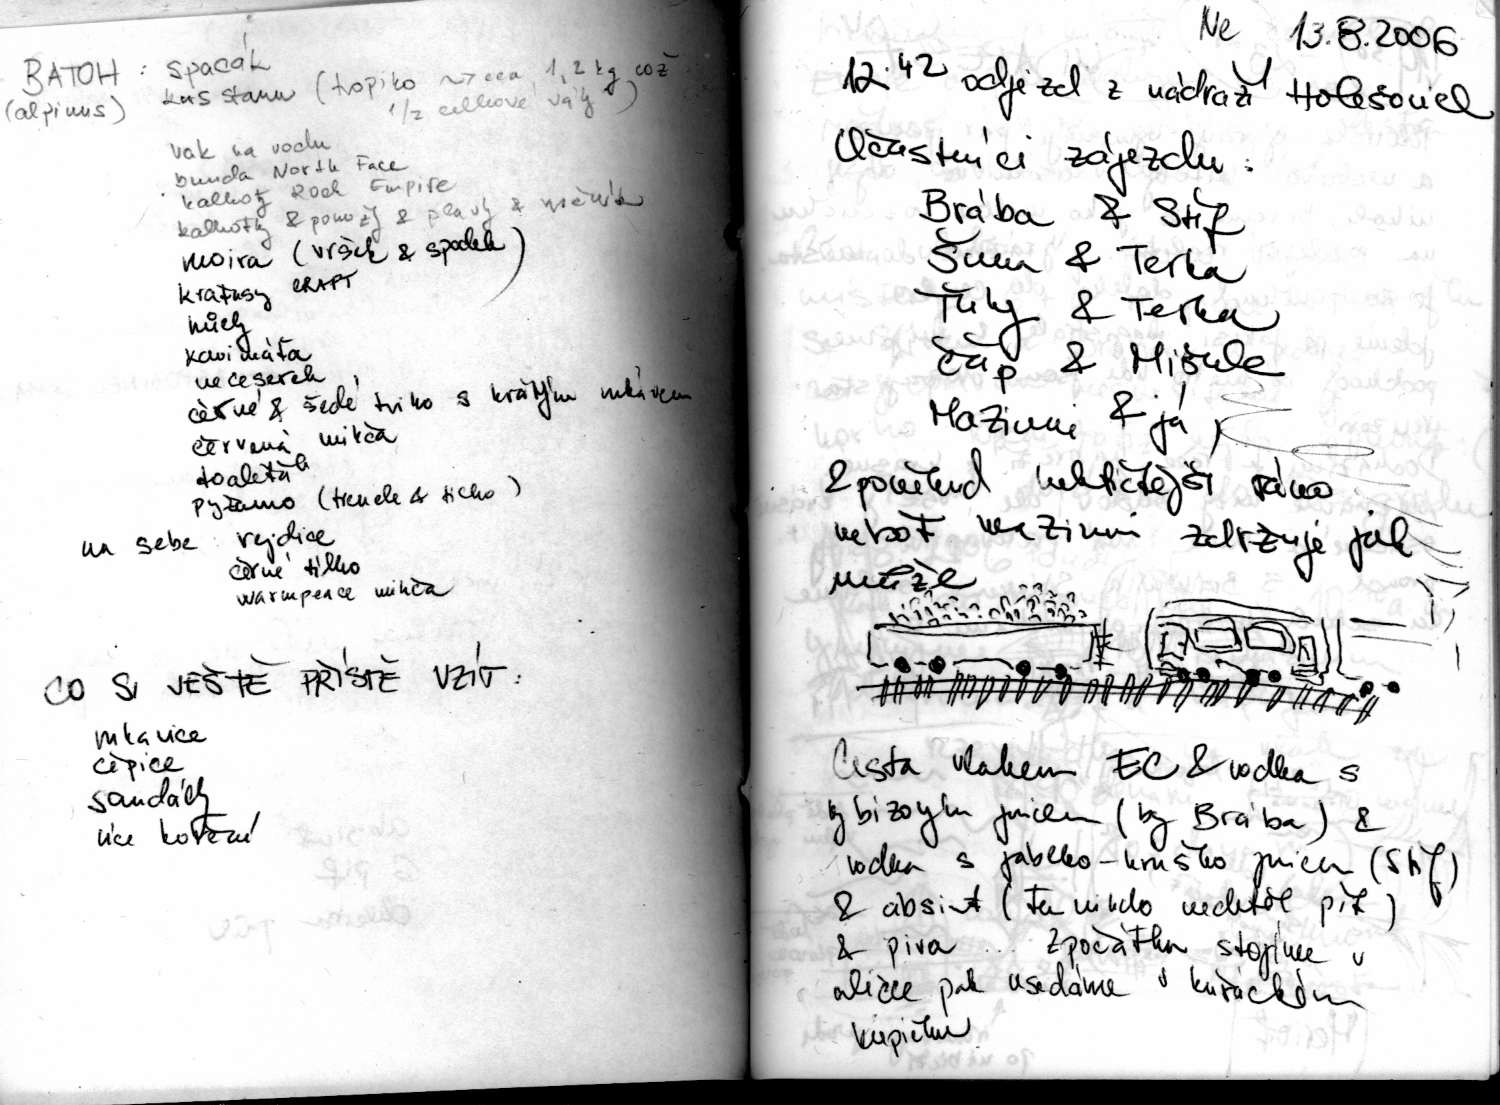 BATOH : spacák
(alpinus) kus stanu (tropiko cca 1,2 kg což
1/2 celkové váhy)
vak na vodu
bunda North Face
kalhoty Rock Empire
kalhotky & ponožky & plavky & ručník
moira (vršek & spodek)
kraťasy CRAFT
hůlky
karimata
neceserek
černé & šedé triko s krátkým rukávem
červená mikča
toaleťák
pyžamo (trencle & ticho)
na sebe : rejdice
černé tílko
warmpeace mikča
CO SI JEŠTĚ PŘÍŠTĚ VZÍT :
rukavice
čepice
sandály
více koření
Ne 13.8.2006
12.42 odjezd z nádraží Holešovice
Účastníci zájezdu :
Brába & Stíf
Šuma & Terka
Ťuky & Terka
Čáp & Mišule
Mazinni & já
Zpočátku hektičtější ráno
neboť Mazinni zdržuje jak
může
Cesta vlakem EC & vodka s
rybízovým juicem (by Brába) &
vodka s jablko-hruško juicem (Stíf)
& absint (ten nikdo nechtěl pít)
& piva ... Zpočátku stojíme v
uličce pak usedáme v kuřáckém
kupíčku.